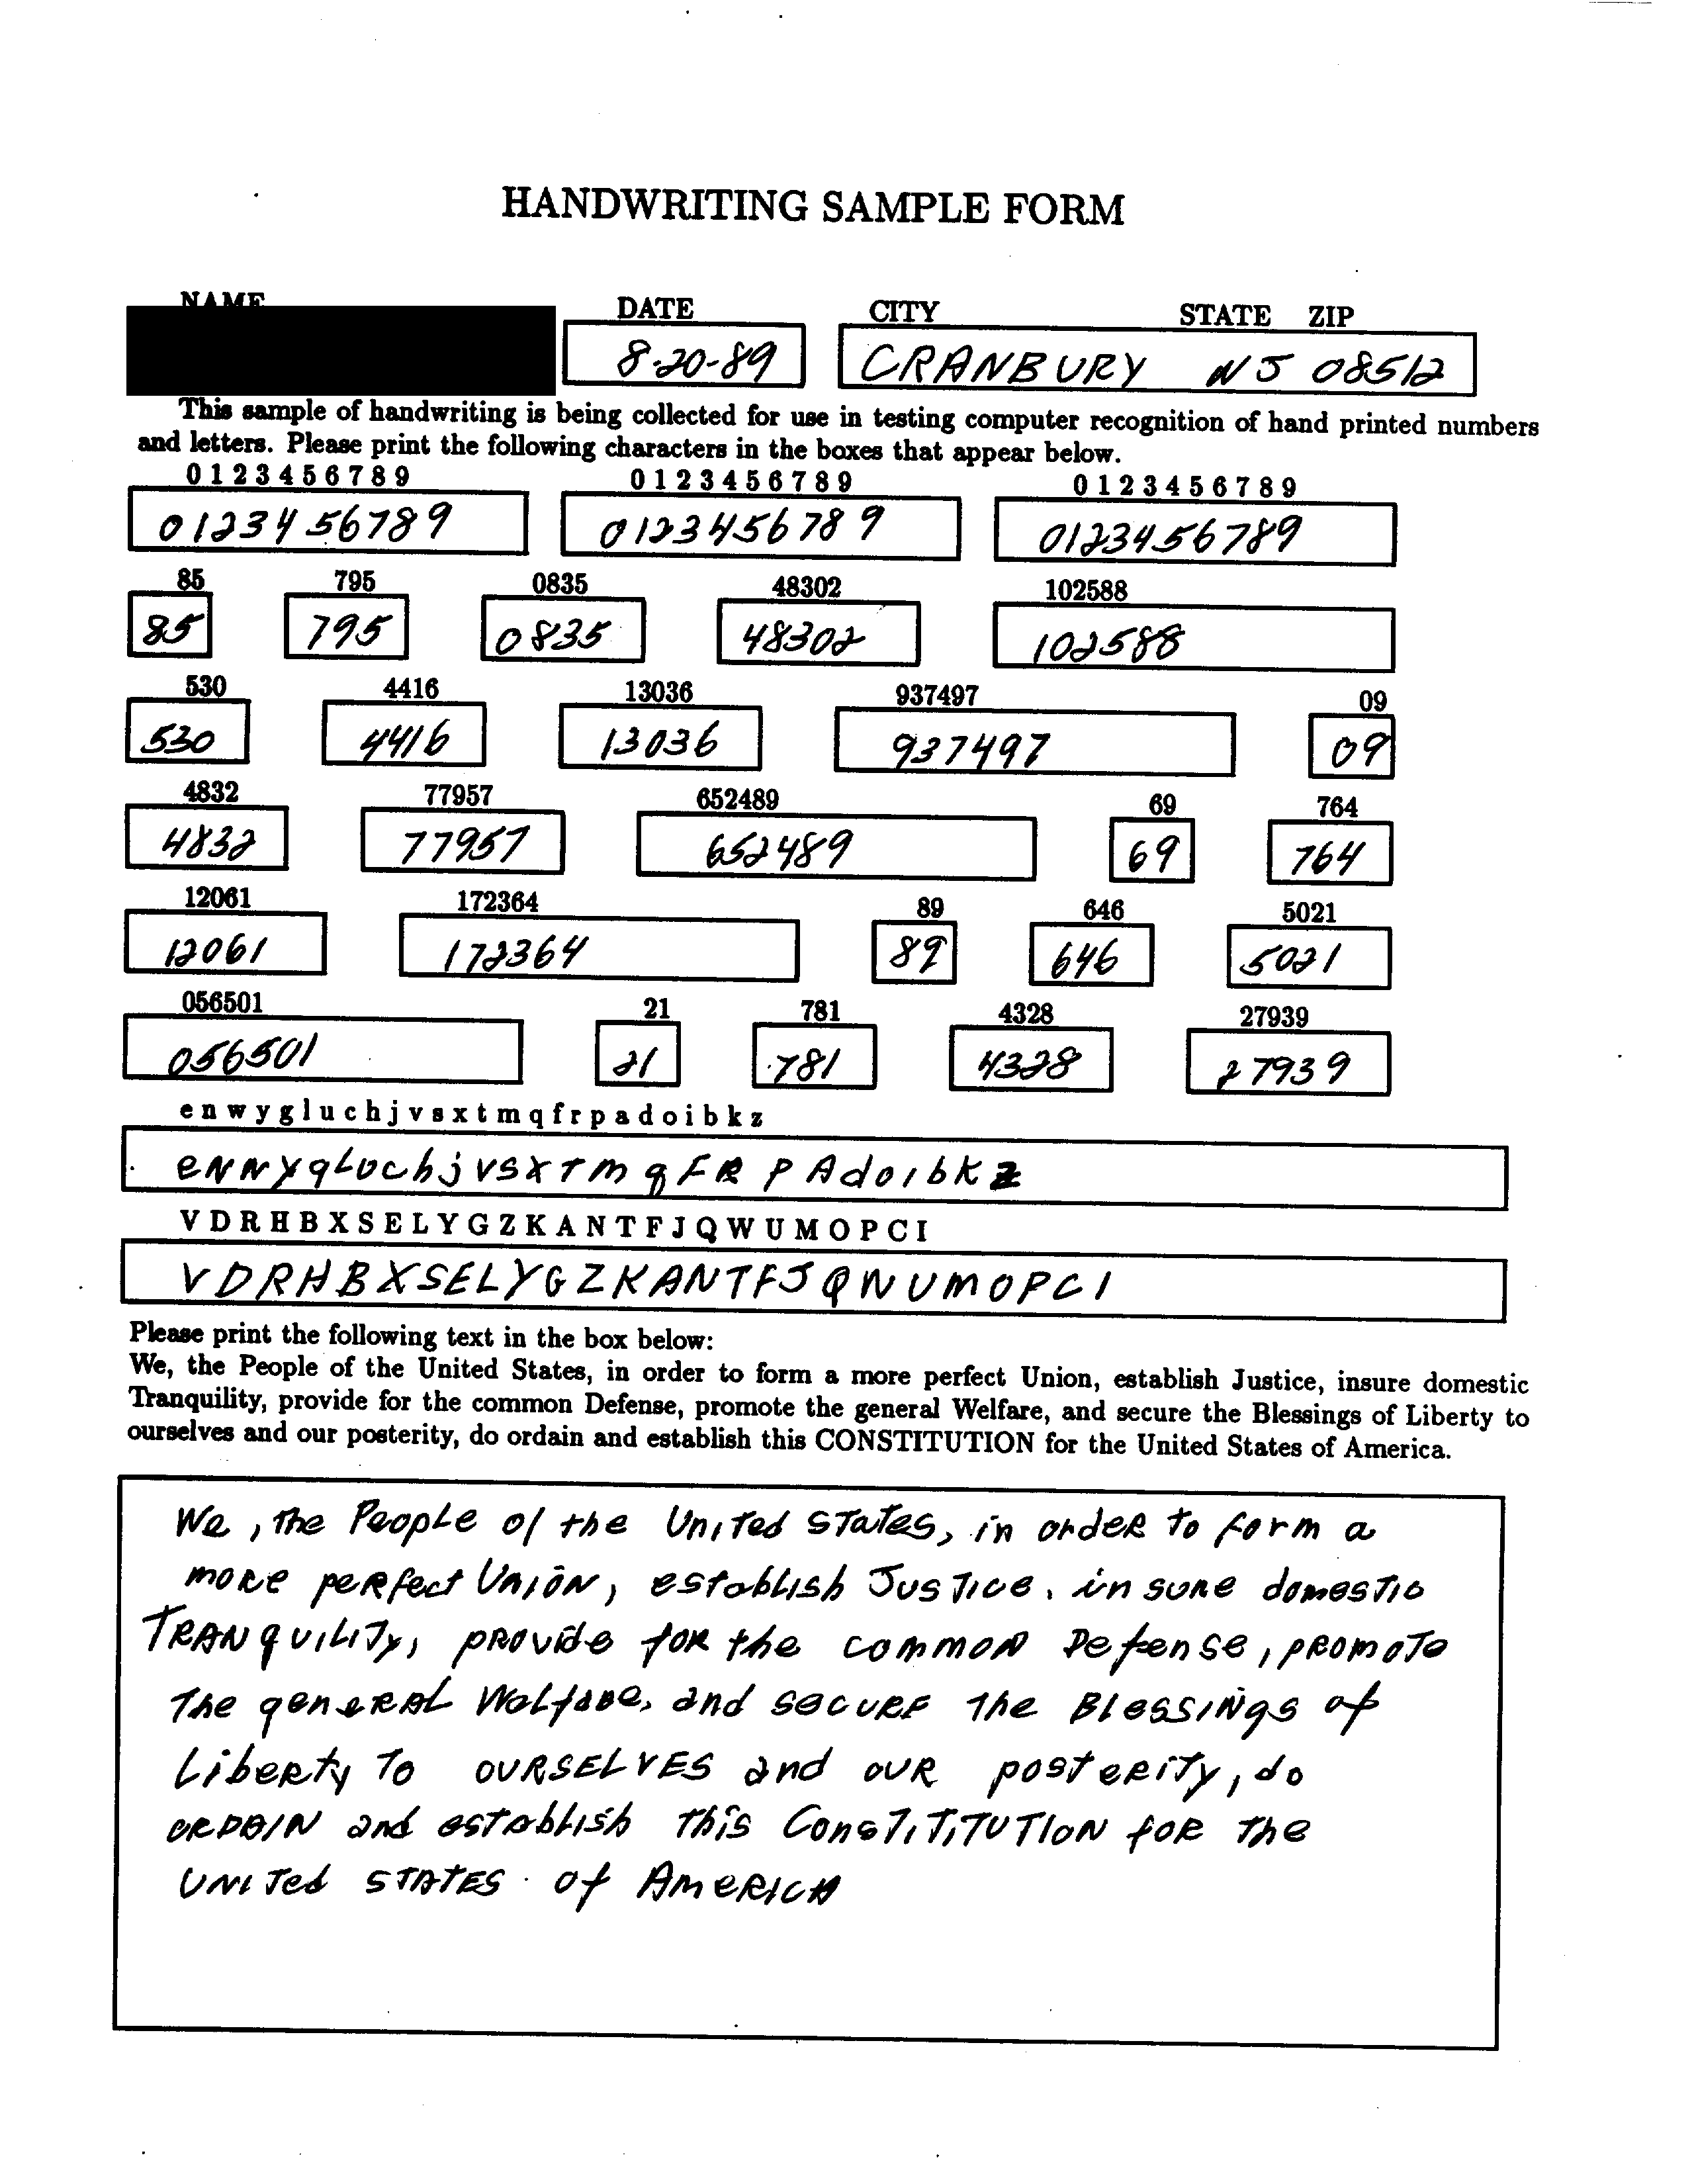 HANDWRITING SAMPLE FORM
NAME DATE CITY STATE ZIP
8-20-89 CRANBURY NJ 08512
This sample of handwriting is being collected for use in testing computer recognition of hand printed numbers
and letters. Please print the following characters in the boxes that appear below.
0 1 2 3 4 5 6 7 8 9 0 1 2 3 4 5 6 7 8 9 0 1 2 3 4 5 6 7 8 9
0123456789 0123456789 0123456789
85 795 0835 48302 102588
85 795 0835 48302 102588
530 4416 13036 937497 09
530 4416 13036 937497 09
4832 77957 652489 69 764
4832 77957 652489 69 764
12061 172364 89 646 5021
12061 172364 89 646 5021
056501 21 781 4328 27939
056501 21 781 4328 27939
e n w y g l u c h j v s x t m q f r p a d o i b k z
eNNyqLuchjvsxTmqFRPAdoibkz
V D R H B X S E L Y G Z K A N T F J Q W U M O P C I
VDRHBXSELYGZKANTFJQWUMOPCI
Please print the following text in the box below:
We, the People of the United States, in order to form a more perfect Union, establish Justice, insure domestic
Tranquility, provide for the common Defense, promote the general Welfare, and secure the Blessings of Liberty to
ourselves and our posterity, do ordain and establish this CONSTITUTION for the United States of America.
We, The PeopLe of the UniTed STaTes, in ordeR to form a
moRe peRfect UniON, establish JusTice, insure domesTic
TRANqUiLiTy, pROvide foR the commoN Defense, pROmoTe
The geneRAL WelfaRe, and secURE The Blessings of
LibeRty To OURSELVES and OUR posteRiTy, do
ORDAIN and esTablish This ConsTiTiTUTION foR The
UNiTed STATES of AmeRICA